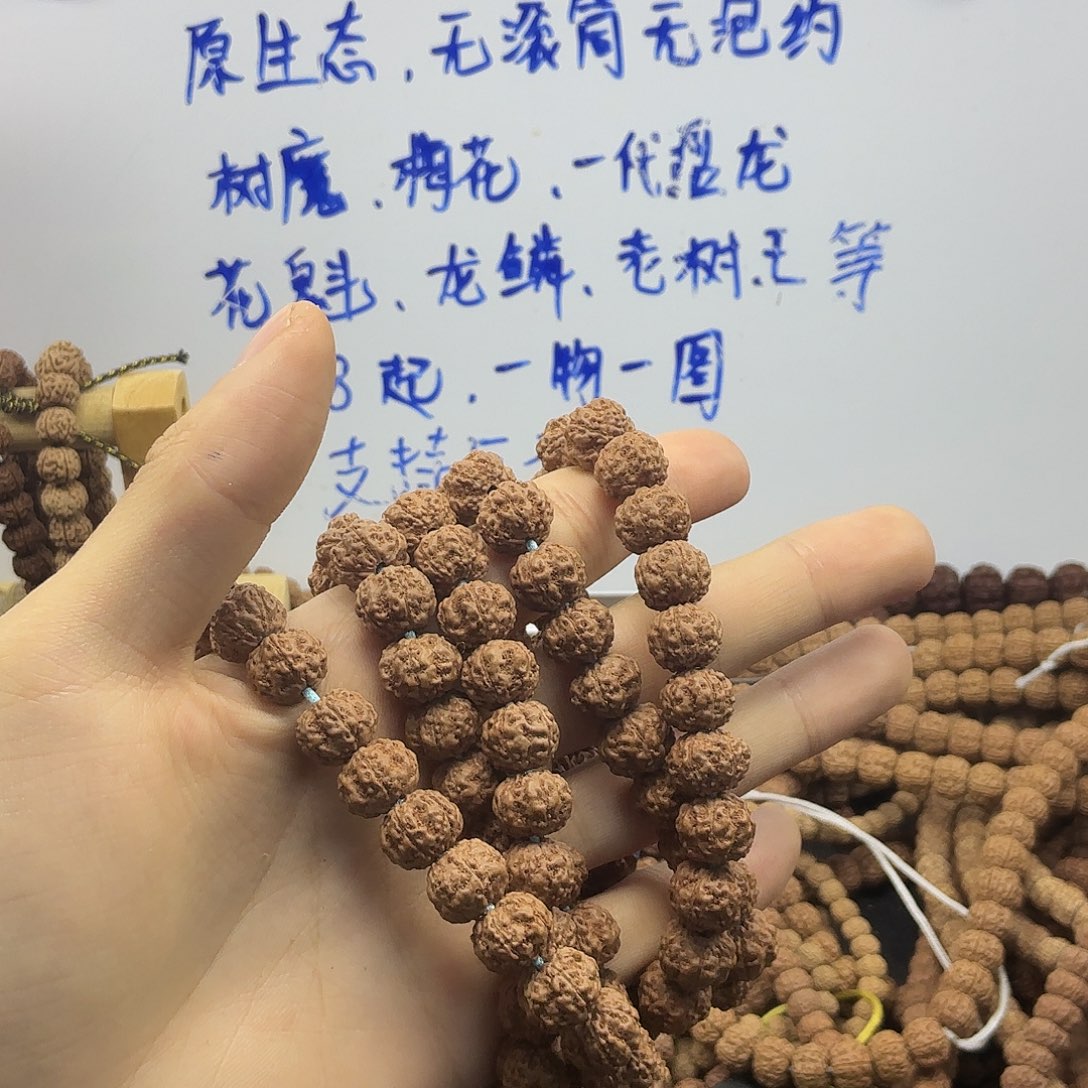 原生态，无滚筒无泡药
树魔、梅花、一代盘龙
花魁、龙鳞、老树王等
8起，一物一图
支持